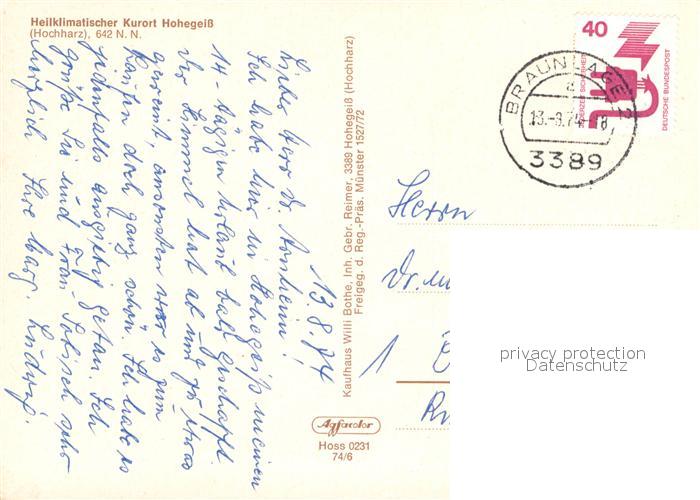 Heilklimatischer Kurort Hohegeiß
(Hochharz), 642 N. N.
13.8.74
Lieber Herr Dr. Arnheim!
Ich habe hier in Hohegeiß meinen
14-tägigen Urlaub bald geschafft.
Der Himmel hat ab und zu etwas
geweint, ansonsten war es zum
Laufen doch ganz schön. Ich habe es
jedenfalls ausgiebig getan. Ich
grüße Sie und Frau sehr
herzlich Ihre Marg. Ludwig.
Kaufhaus Willi Bothe, Inh. Gebr. Reimer, 3389 Hohegeiß (Hochharz)
Freigeg. d. Reg.-Präs. Münster 1527/72
Agfacolor
Hoss 0231
74/6
40
JEDERZEIT SICHERHEIT
DEUTSCHE BUNDESPOST
BRAUNLAGE 2
a
13.-8.74-18
3389
Herrn
Dr. m
1
privacy protection
Datenschutz